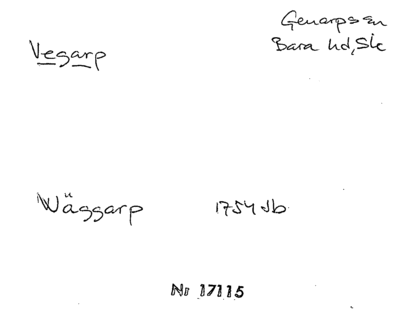 Vegarp
Genarps sn
Bara hd, Sk
Wäggarp 1754 Jb
Nr 17115